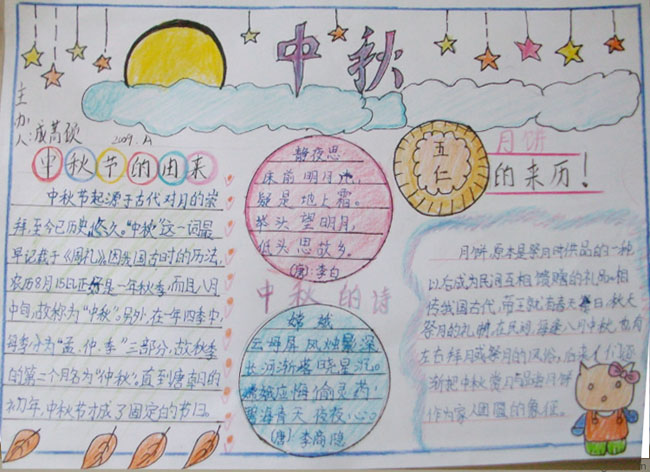 中秋
主
办
人:成蒿硕
2009.
中秋节的由来
中秋节起源于古代对月的崇
拜,至今已历史悠久。"中秋"这一词最
早记载于《周礼》因我国古时的历法,
农历8月15日正好是一年秋季,而且八月
中旬,故称为"中秋",另外,在一年四季中,
每季分为"孟、仲、季"三部分,故秋季
的第二个月名为"仲秋",直到唐朝的
初年,中秋节才成了固定的节日。
静夜思
床前明月光,
疑是地上霜。
举头望明月,
低头思故乡。
(唐)李白
中秋的诗
嫦娥
云母屏风烛影深
长河渐落晓星沉。
嫦娥应悔偷灵药,
碧海青天夜夜心。
(唐)李商隐
五
仁
月饼
的来历!
月饼,原本是祭月时供品的一种
以后成为民间互相馈赠的礼品。相
传我国古代,帝王就有春天祭日,秋天
祭月的礼制,在民间,每逢八月中秋,也有
左右拜月或祭月的风俗,后来人们逐
渐把中秋赏月与品尝月饼
作为家人团圆的象征。